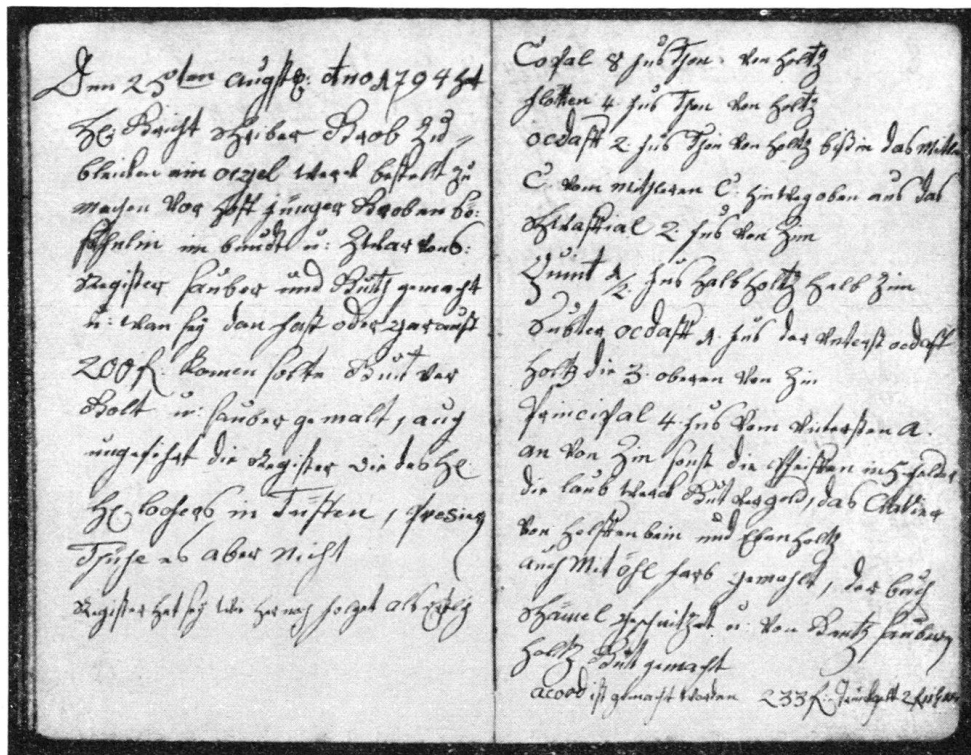 Den 25ten Augst: Ano 1794 hat
Hr Gricht schriber Grob zu
bleiken ein orgel werck bestelt zu
machen vor Jost junger Groben
im bundt u: zwar von 6:
Register sauber und Gutz gemacht
u: wan sey dan fast oder gar auff
200 f. komen solte Gut ver
Golt u: sauber gemalt, auch
ungefehrt die Register wie des Hr:
Hr lochers in
es aber nicht
Register hat sey wie hernoch folget als
Copal 8 fus Thon von holtz
flotten 4 fus Thon von holtz
ocdaff 2 fus Thon von holtz biß in das Mitle
C vom mitleren C: hinweg oben aus das
2 fus von Zin
Quint 1 1/2 fus halb holtz halb Zin
Subter ocdaff 1 fus der unterst ocdaff
holtz die 3 oberen von Zin
Principal 4 fus vom untersten a.
an von Zin sonst die Pfeiffen in 5 felder
die laub werck Gut vergold, das Clavier
von helffenbein und Eben holtz
auch Mit öhl farb gemahlt, der
u: von sauberen
holtz Gut gemacht
acood ist gemacht worden 233 f: 2